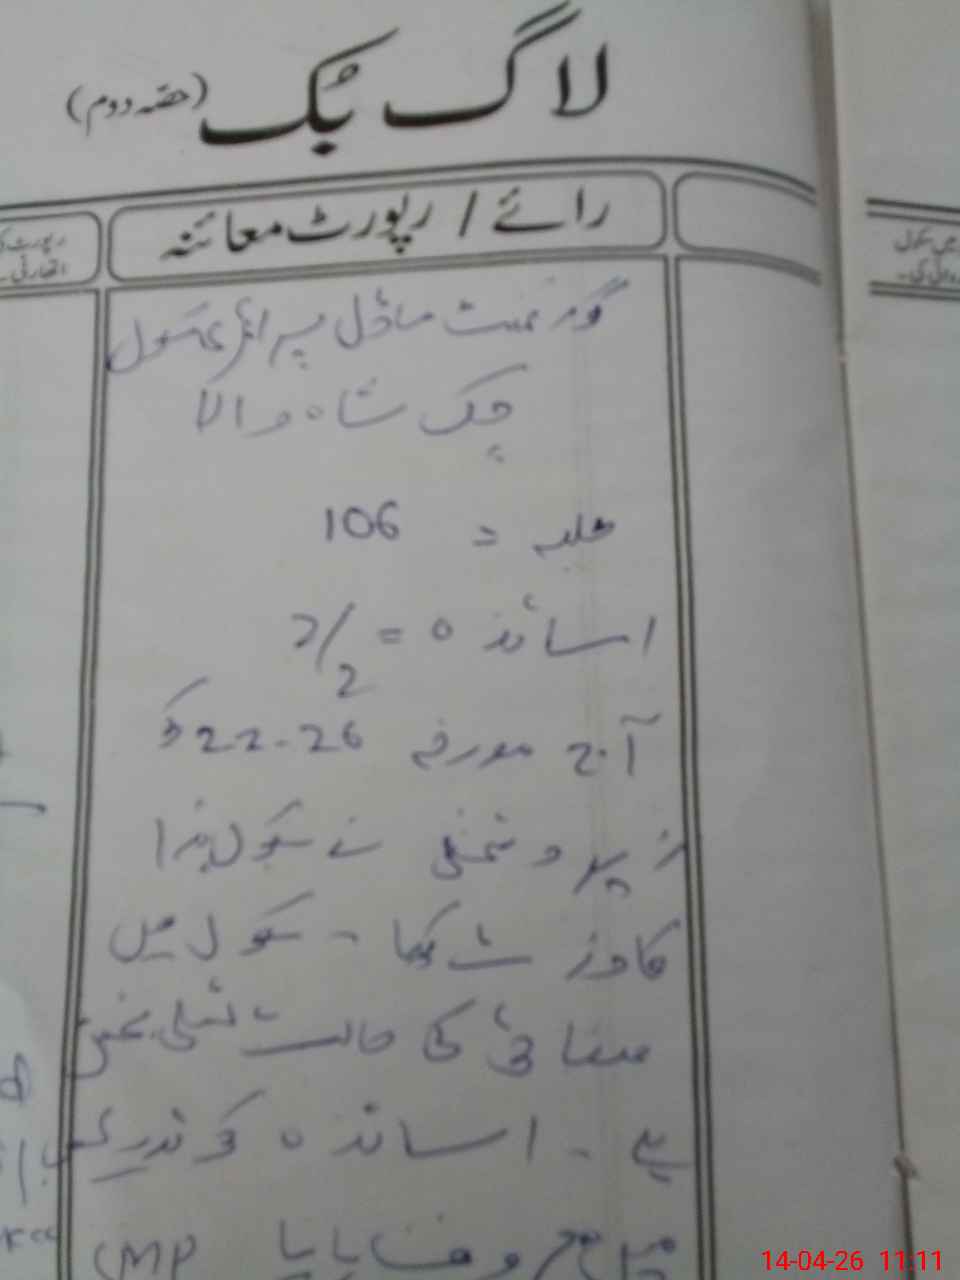 لاگ بُک (حصہ دوم)
رائے / رپورٹ معائنہ
گورنمنٹ ماڈل پرائمری سکول
چک شاہ والا
طلبہ = 106
اساتذہ = 2/2
آج مورخہ 22-26 کو
زیر دستخطی نے سکول ہذا
کا وزٹ کیا - سکول میں
صفائی کی حالت تسلی بخش
ہے - اساتذہ کو تدریس
میں مصروف پایا CMP
14-04-26 11:11